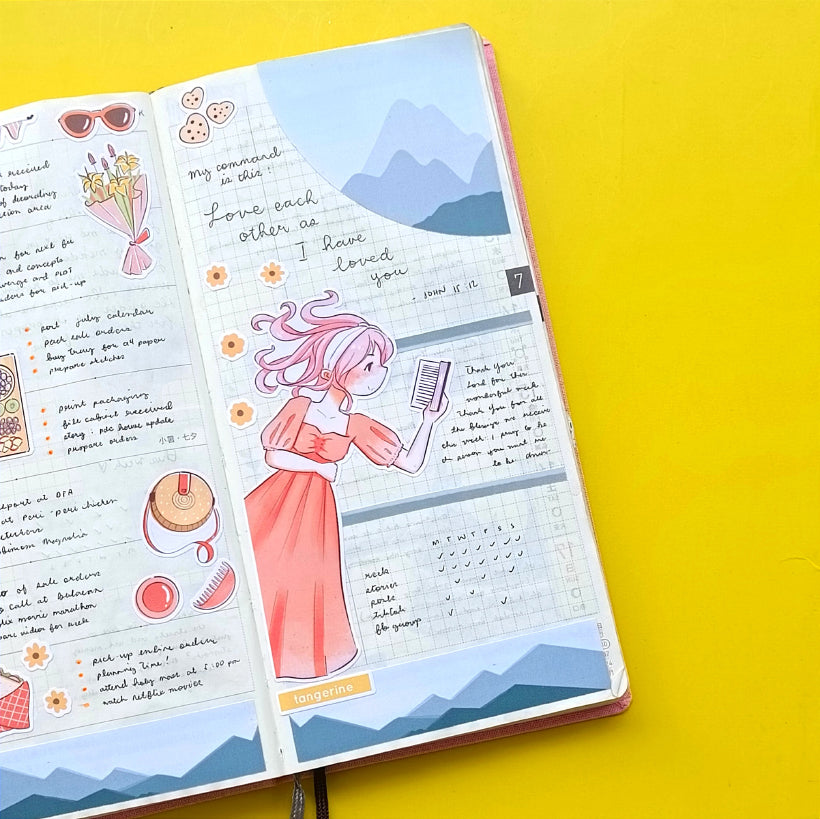 K
received
today
of decorating
area
for next
and concepts
and PLOT
for pick-up
port: july calendar
pack sale orders
buy tray for a4 paper
prepare sketches
print packaging
file cabinet received
story: pdc house update
prepare orders
小暑·七夕
at DFA
at Peri-peri chicken
Magnolia
of sale orders
call at
movie marathon
videos for week
pick-up online orders
planning time!
attend holy mass at 5:00 pm
watch netflix movies
my command
is this:
Love each
other as
I have
loved
you
- JOHN 15:12
7
Thank you
Lord for this
wonderful week.
Thank you for all
the blessings we receive
this week. I pray to be
person you want me
to be.
M T W T F S S
reels
stories
posts
tiktok
fb group
tangerine